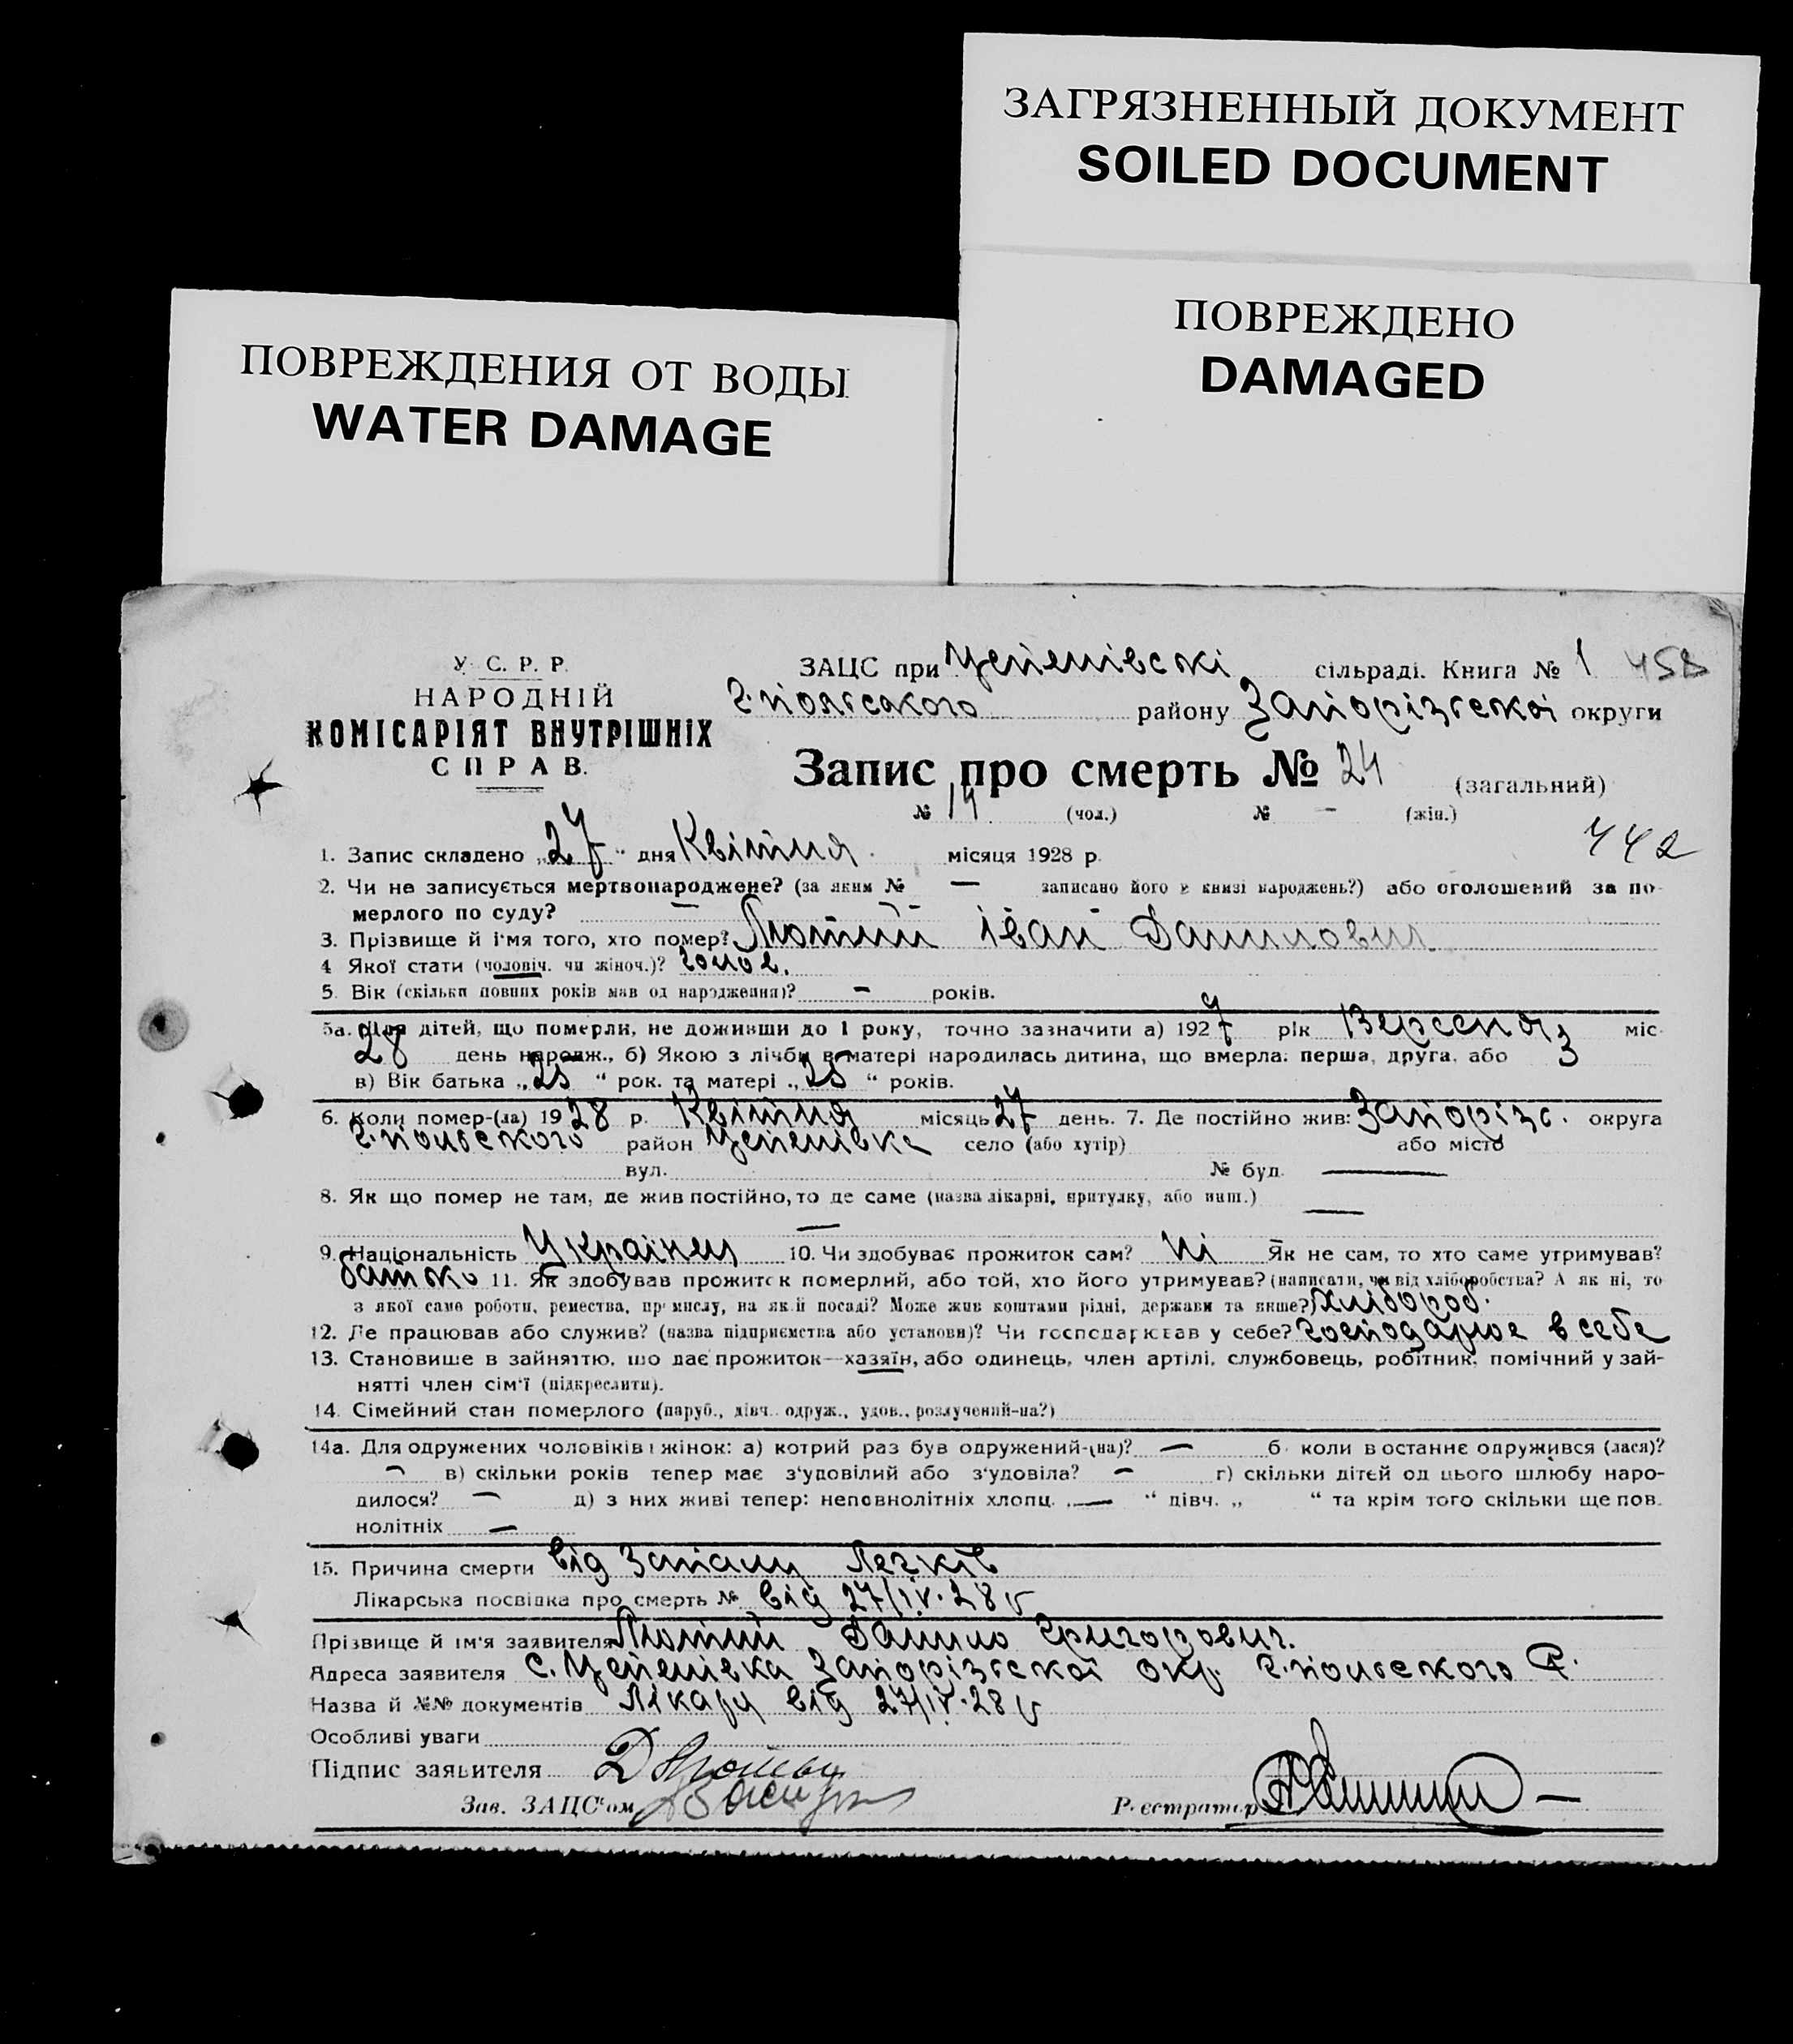 ЗАГРЯЗНЕННЫЙ ДОКУМЕНТ
SOILED DOCUMENT
ПОВРЕЖДЕНО
DAMAGED
ПОВРЕЖДЕНИЯ ОТ ВОДЫ
WATER DAMAGE
У. С. Р. Р.
НАРОДНІЙ
КОМІСАРІЯТ ВНУТРІШНІХ
СПРАВ.
ЗАЦС при Успенівскі сільраді. Книга № 1 458
г.польского району Запорізської округи
Запис про смерть № 24 (загальний)
№ 14 (чол.) № – (жін.)
442
1. Запис складено „27“ дня Квітня місяця 1928 р.
2. Чи не записується мертвонароджене? (за яким № — записано його в книзі народжень?) або оголошений за по-
мерлого по суду? —
3. Прізвище й ім'я того, хто помер? Лютий Іван Данилович
4 Якої стати (чоловіч. чи жіноч.)? чолов.
5. Вік (скільки повних років мав од народження)? – років.
5а. Для дітей, що померли, не доживши до 1 року, точно зазначити а) 1927 рік Вересня міс.
28 день народж., б) Якою з лічби в матері народилась дитина, що вмерла: перша, друга, або 3
в) Вік батька „25“ рок. та матері „25“ років.
6. Коли помер-(ла) 1928 р. Квітня місяць 27 день. 7. Де постійно жив: Запорізс. округа
г.польского район Успенівка село (або хутір) або місто
вул. № буд. —
8. Як що помер не там, де жив постійно, то де саме (назва лікарні, притулку, або инш.) —
—
9. Національність Українец 10. Чи здобуває прожиток сам? Ні Як не сам, то хто саме утримував?
батько 11. Як здобував прожиток померлий, або той, хто його утримував? (написати, чи від хліборобства? А як ні, то
з якої саме роботи, ремества, промислу, на якій посаді? Може жив коштами рідні, держави та инше?) хлібороб.
12. Де працював або служив? (назва підприємства або установи)? Чи господарював у себе? господарює в себе
13. Становище в зайняттю, що дає прожиток—хазяїн, або одинець, член артілі, службовець, робітник, помічний у зай-
нятті член сім'ї (підкреслити).
14. Сімейний стан померлого (паруб., дівч. одруж., удов., розлучений-на?)
14а. Для одружених чоловіків і жінок: а) котрий раз був одружений-(на)? — б. коли востаннє одружився (лася)?
— в) скільки років тепер має з'удовілий або з'удовіла? – г) скільки дітей од цього шлюбу наро-
дилося? — д) з них живі тепер: неповнолітніх хлопц. „— “ дівч. „ “ та крім того скільки ще пов.
нолітніх —
15. Причина смерти від Запалу Легків
Лікарська посвідка про смерть № від 27/IV.28 р
Прізвище й ім'я заявителя Лютий Данило Григорович.
Адреса заявителя с. Успенівка Запорізської окр. г.польского Р.
Назва й №№ документів Лікаря від 27/IV.28 р
Особливі уваги
Підпис заявителя Д Лютый
Зав. ЗАЦС'ом Реєстратор